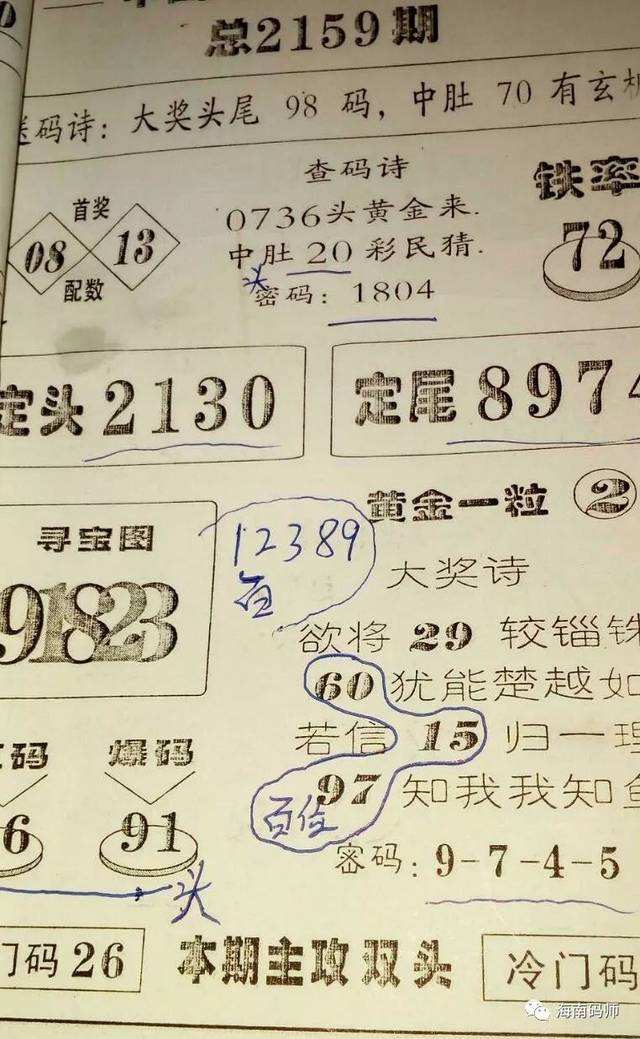 总2159期
送码诗：大奖头尾 98 码，中肚 70 有玄机
查码诗
铁率
首奖
0736头黄金来.
08 13
72
中肚 20 彩民猜.
配数
头
密码：1804
定头 2130
定尾 8974
黄金一粒 2
寻宝图
12389
百
大奖诗
91823
欲将 29 较锱铢
60 犹能楚越如
码 爆码
若信 15 归一理
6 91
97 知我我知鱼
百位
密码：9-7-4-5
头
门码 26
本期主攻双头
冷门码
海南码师